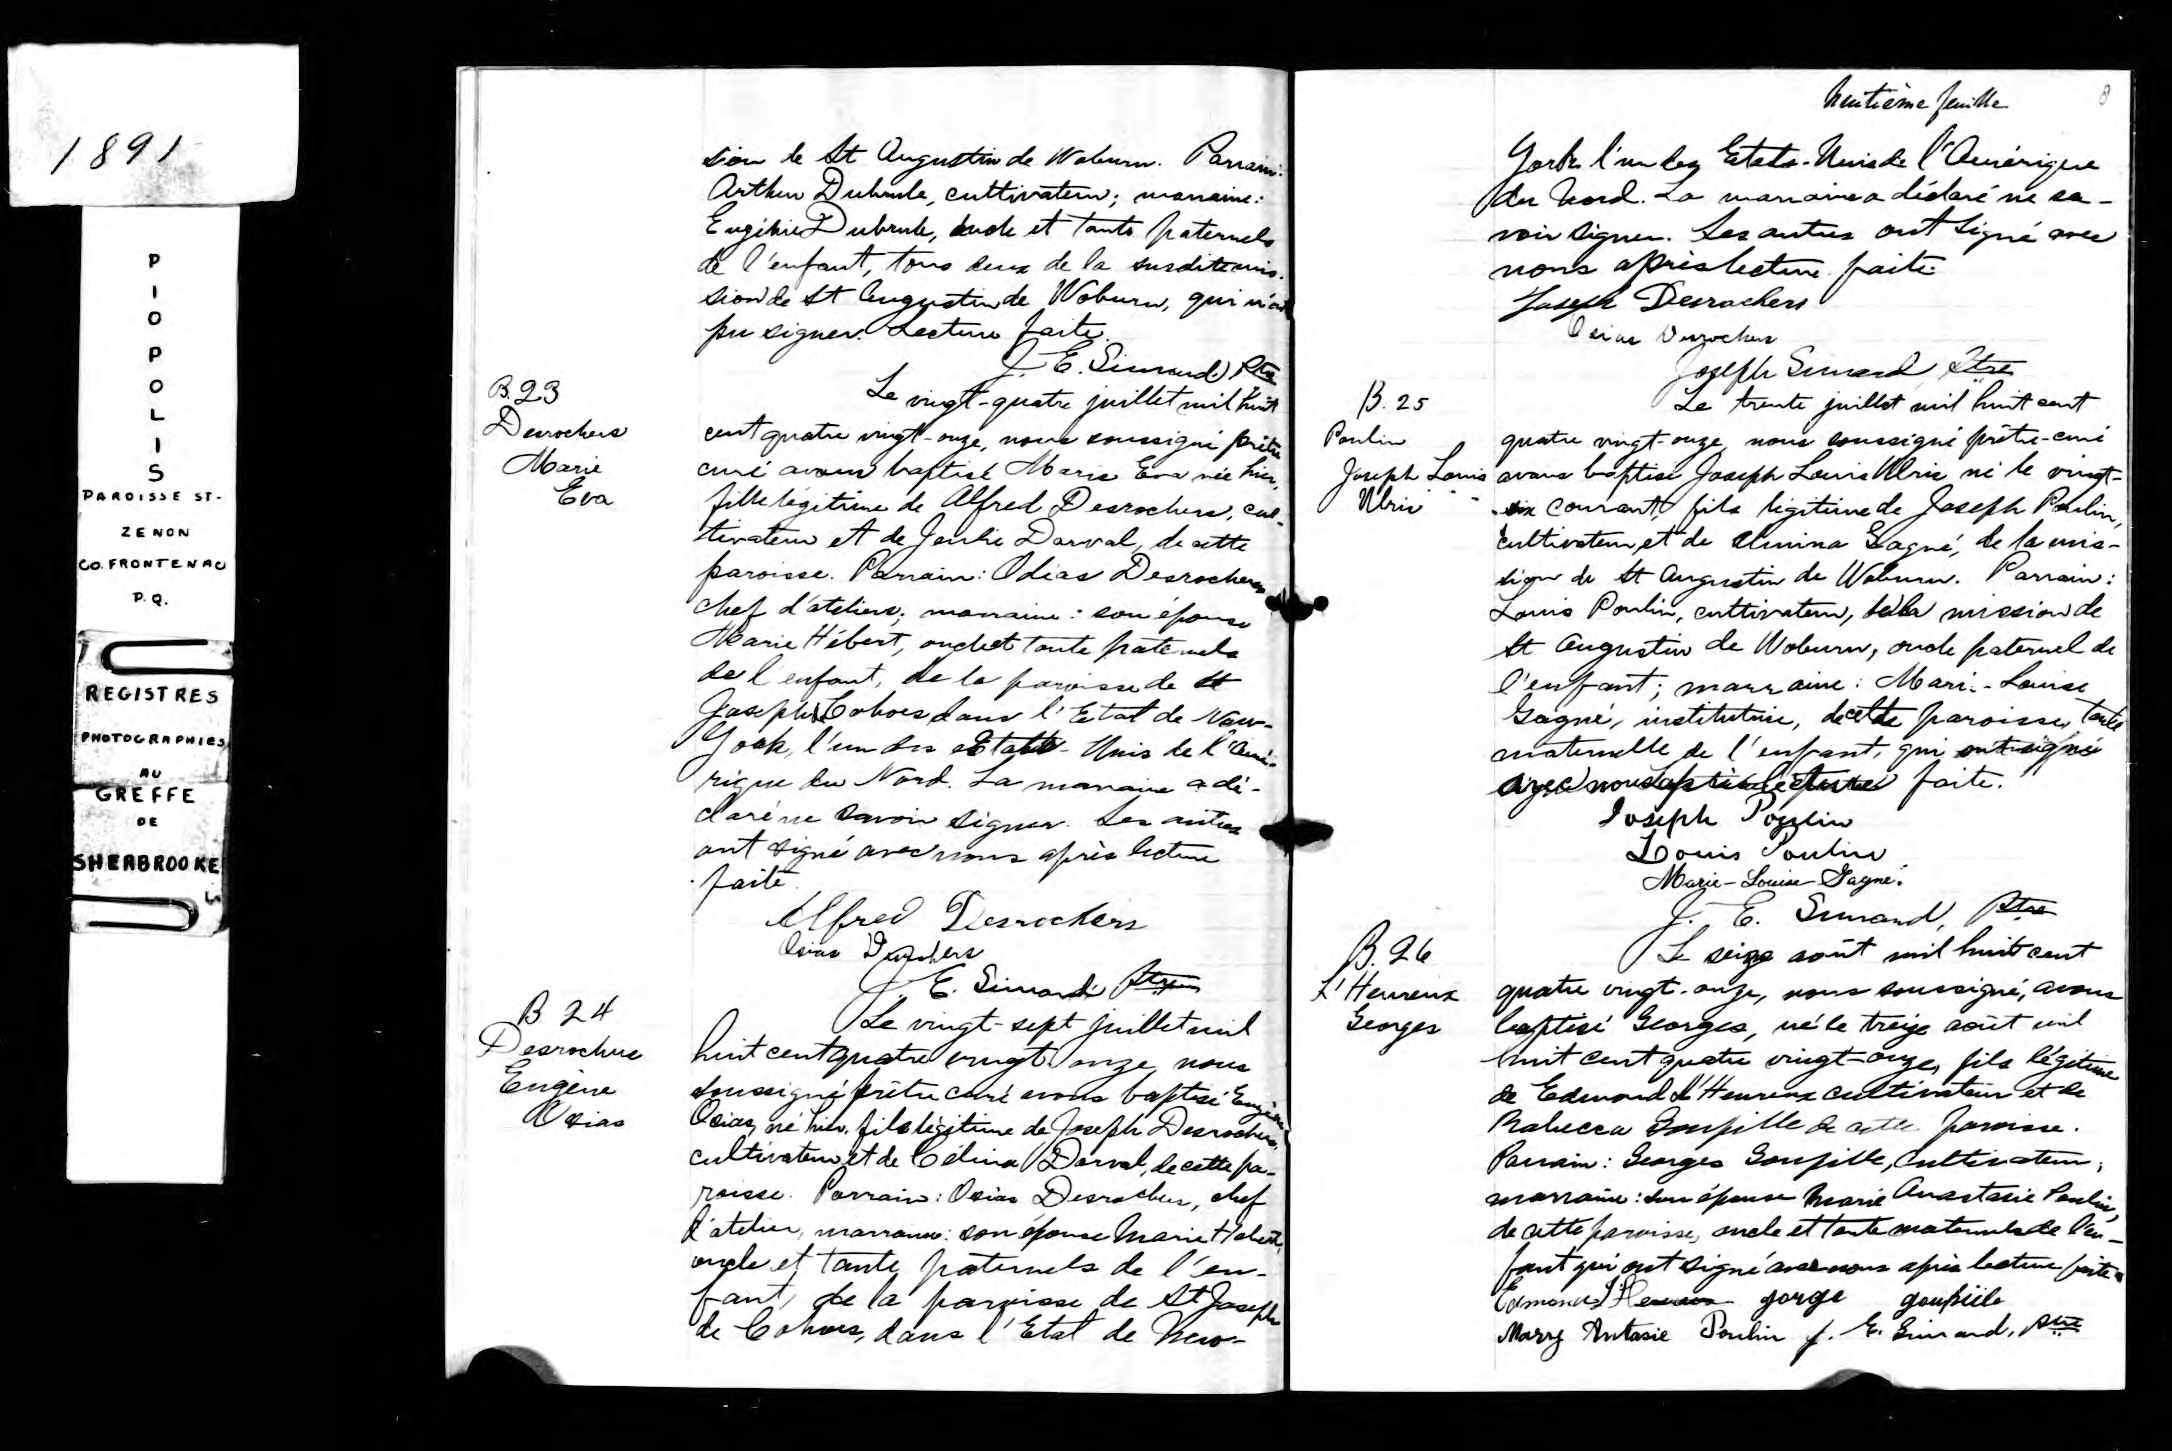 1891
PIOPOLIS
PAROISSE ST-
ZENON
CO. FRONTENAC
P.Q.
REGISTRES
PHOTOGRAPHIES
AU
GREFFE
DE
SHERBROOKE
sion de St Augustin de Woburn. Parrain:
Arthur Dubrule, cultivateur; marraine:
Eugénie Dubrule, oncle et tante paternels
de l'enfant, tous deux de la susdite mis-
sion de St Augustin de Woburn, qui n'ont
pu signer. Lecture faite.
J. E. Simard Ptre
B. 23
Desrochers
Marie
Eva
Le vingt-quatre juillet mil huit
cent quatre vingt-onze, nous soussigné prêtre
curé avons baptisé Marie Eva née hier,
fille légitime de Alfred Desrochers, cul-
tivateur et de Darval, de cette
paroisse. Parrain: Odias Desrochers
chef d'ateliers; marraine: son épouse
Marie Hébert, oncle et tante paternels
de l'enfant, de la paroisse de St
Joseph Cohoes dans l'Etat de New-
York, l'un des Etats-Unis de l'Amé-
rique du Nord. La marraine a dé-
claré ne savoir signer. Les autres
ont signé avec nous après lecture
faite.
Alfred Desrochers
Osias Desrochers
J. E. Simard Ptre
B 24
Desrochers
Eugène
Osias
Le vingt-sept juillet mil
huit cent quatre vingt onze, nous
soussigné prêtre curé avons baptisé Eugène
Osias, né hier, fils légitime de Joseph Desrochers,
cultivateur et de Célina Darval, de cette pa-
roisse. Parrain: Osias Desrochers, chef
d'atelier, marraine: son épouse Marie Hebert,
oncle et tante paternels de l'en-
fant, de la paroisse de St Joseph
de Cohoes, dans l'Etat de New-
huitième feuille
8
York l'un des Etats-Unis de l'Amérique
du Nord. La marraine a déclaré ne sa-
voir signer. Les autres ont signé avec
nous après lecture faite.
Joseph Desrochers
Osias Desrochers
Joseph Simard Ptre
B. 25
Poulin
Joseph Louis
Ulric
Le trente juillet mil huit cent
quatre vingt-onze, nous soussigné prêtre-curé
avons baptisé Joseph Louis Ulric né le vingt-
six courant, fils légitime de Joseph Poulin,
cultivateur, et de Elmina Gagné, de la mis-
sion de St Augustin de Woburn. Parrain:
Louis Poulin, cultivateur, de la mission de
St Augustin de Woburn, oncle paternel de
l'enfant; marraine: Marie-Louise
Gagné, institutrice, de cette paroisse, tante
maternelle de l'enfant, qui ont signé
avec nous après lecture faite.
Joseph Poulin
Louis Poulin
Marie-Louise Gagné.
J. E. Simard, Ptre
B. 26
L'Heureux
Georges
Le seize août mil huit cent
quatre vingt-onze, nous soussigné, avons
baptisé Georges, né le treize août mil
huit cent quatre vingt-onze, fils légitime
de Edmond L'Heureux cultivateur et de
Rabecca Goupille de cette paroisse.
Parrain: Georges Goupille, cultivateur,
marraine: son épouse Marie Anastasie Poulin,
de cette paroisse, oncle et tante maternels de l'en-
fant qui ont signé avec nous après lecture faite.
Edmond L'Heureux gorge goupiile
Mary Antasie Poulin J. E. Simard, Ptre